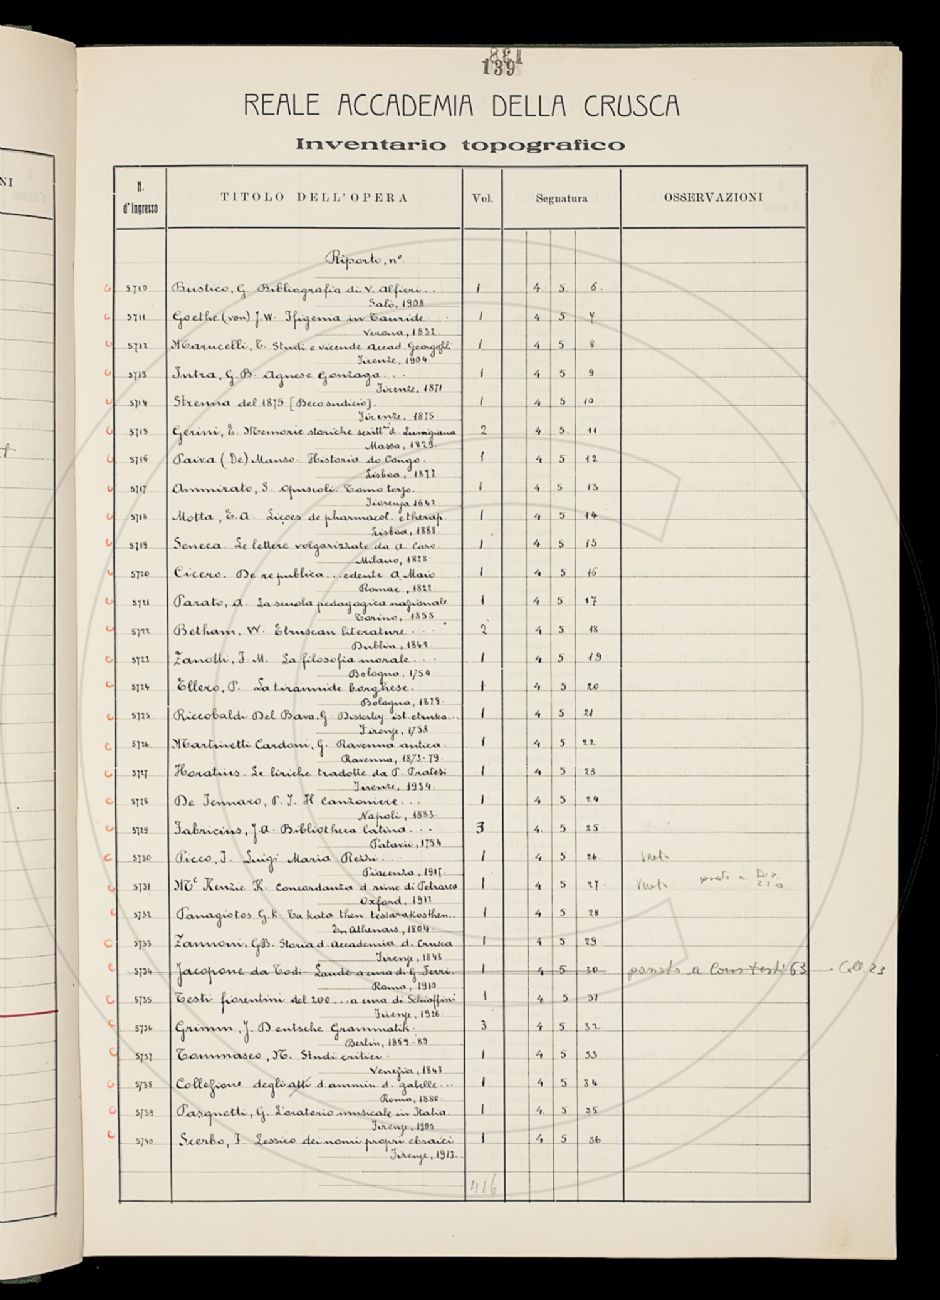 139
REALE ACCADEMIA DELLA CRUSCA
Inventario topografico
N. d'Ingresso TITOLO DELL'OPERA Vol. Segnatura OSSERVAZIONI
Riporto, n°
5710 Bustico, G. Bibliografia di V. Alfieri.. 1 4 5 6.
Salò, 1908
5711 Goethe (von) J.W. Ifigenia in Tauride... 1 4 5 7
Verona, 1832
5712 Marucelli, E. Studi e vicende Accad. Georgofili 1 4 5 8
Firenze, 1904
5713 Intra, G.B. Agnese Gonzaga... 1 4 5 9
Firenze, 1871
5714 Strenna del 1875 [Beco sudicio]. 1 4 5 10
Firenze, 1875
5715 Gerini, E. Memorie storiche scritt. d. Lunigiana 2 4 5 11
Massa, 1829
5716 Paiva (De) Manso. Historia do Congo. 1 4 5 12
Lisboa, 1877
5717 Ammirato, S. Opuscoli. Tomo terzo. 1 4 5 13
Fiorenza 1642
5718 Motta, E.A. Liçoes de pharmacol. e therap. 1 4 5 14
Lisboa, 1888
5719 Seneca. Le lettere volgarizzate da A. Caro 1 4 5 15
Milano, 1828
5720 Cicero. De republica... edente A. Maio 1 4 5 16
Romae, 1822
5721 Parato, A. La scuola pedagogica nazionale 1 4 5 17
Torino, 1855
5722 Betham, W. Etruscan literature... 2 4 5 18
Dublin, 1842
5723 Zanotti, F. M. La filosofia morale... 1 4 5 19
Bologna, 1754
5724 Ellero, P. La tirannide borghese. 1 4 5 20
Bologna, 1879
5725 Riccobaldi Del Bava, G. Dissertaz. ist. etrusca... 1 4 5 21
Firenze, 1758
5726 Martinetti Cardoni, G. Ravenna antica. 1 4 5 22
Ravenna, 1873-79
5727 Horatius. Le liriche tradotte da P. Pratesi 1 4 5 23
Firenze, 1934
5728 De Jennaro, P. J. Il canzoniere... 1 4 5 24
Napoli, 1883
5729 Fabricius, J.A. Bibliotheca latina... 3 4 5 25
Patavii, 1754
5730 Picco, F. Luigi Maria Rezzi... 1 4 5 26
Piacenza, 1917
5731 Mc Kenzie K. Concordanza d. rime di Petrarca 1 4 5 27
Oxford, 1912
5732 Panagiotos G.K. Ta kata then tessarakosthen.. 1 4 5 28
En Athenais, 1804
5733 Zannoni, G.B. Storia d. Accademia d. Crusca 1 4 5 29
Firenze, 1848
5734 Jacopone da Todi Laude a cura di G. Ferri. 1 4 5 30 passato a Cons testi 63 - Coll. 23
Roma, 1910
5735 Testi fiorentini del 200... a cura di Schiaffini 1 4 5 31
Firenze, 1926
5736 Grimm, J. Deutsche Grammatik. 3 4 5 32
Berlin, 1869-89
5737 Tommaseo, N. Studi critici. 1 4 5 33
Venezia, 1843
5738 Collezione degli atti d. ammin. d. gabelle... 1 4 5 34
Roma, 1880
5739 Pasquetti, G. L'oratorio musicale in Italia. 1 4 5 35
Firenze, 1906
5740 Scerbo, F. Lessico dei nomi propri ebraici 1 4 5 36
Firenze, 1913.
416